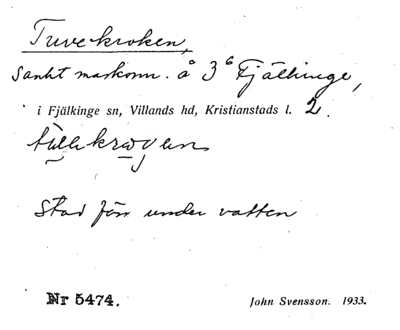 Tuvekroken,
Sankt markomr. å 3⁶ Fjälkinge,
i Fjälkinge sn, Villands hd, Kristianstads l. 2.
Stod förr under vatten
Nr 5474. John Svensson. 1933.